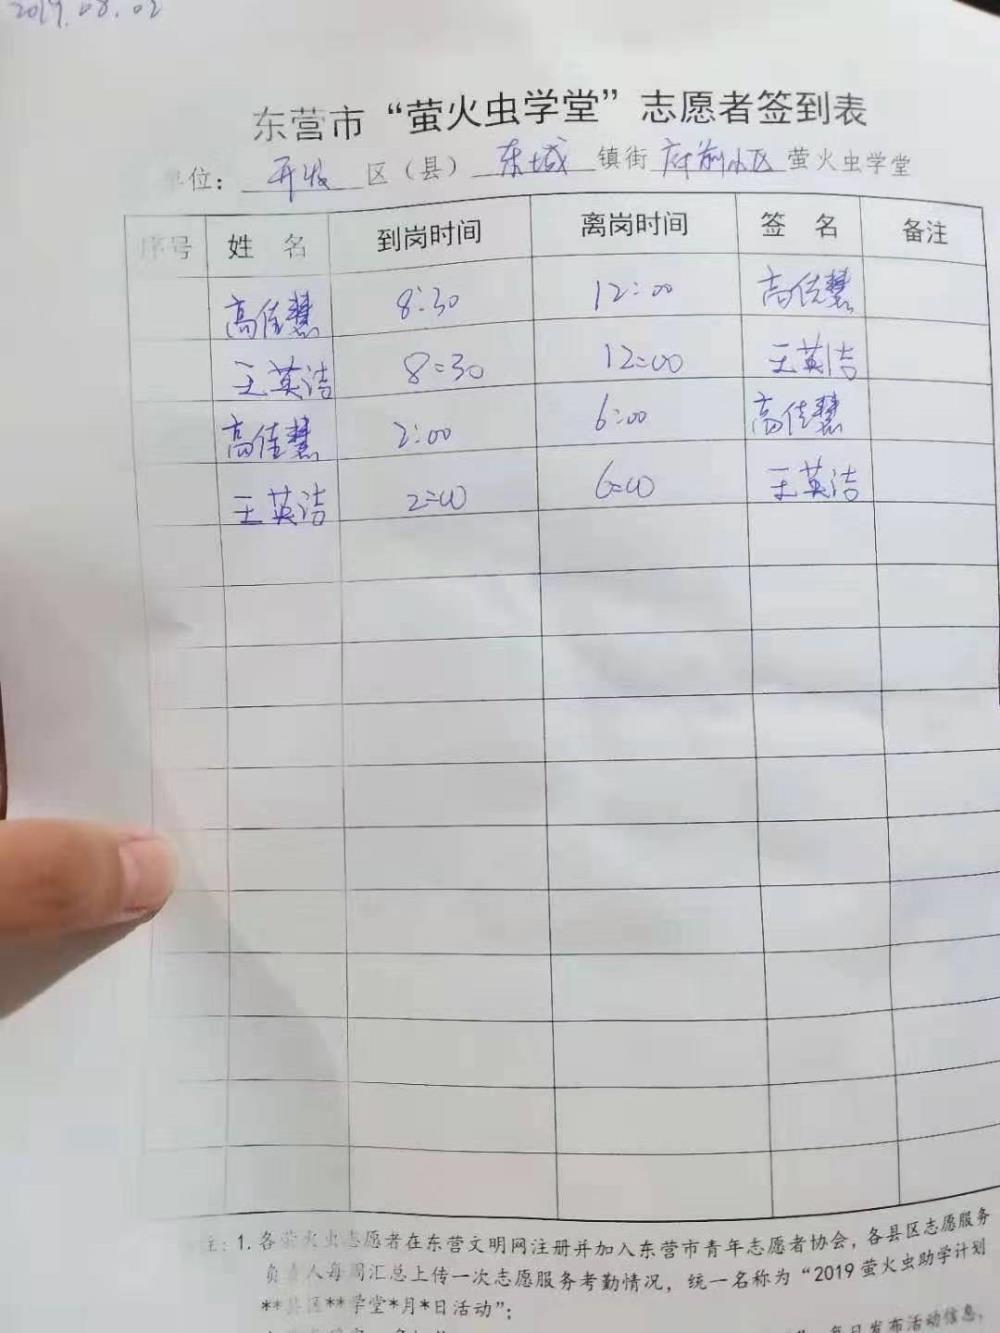 2019.08.02
东营市“萤火虫学堂”志愿者签到表
单位：开发区（县）东城镇街府前小区萤火虫学堂
序号 姓 名 到岗时间 离岗时间 签 名 备注
高佳慧 8:30 12:00 高佳慧
王英洁 8:30 12:00 王英洁
高佳慧 2:00 6:00 高佳慧
王英洁 2:00 6:00 王英洁
注：1.各萤火虫志愿者在东营文明网注册并加入东营市青年志愿者协会，各县区志愿服务
负责人每周汇总上传一次志愿服务考勤情况，统一名称为“2019萤火虫助学计划
**县区**学堂*月*日活动”；
每日发布活动信息，